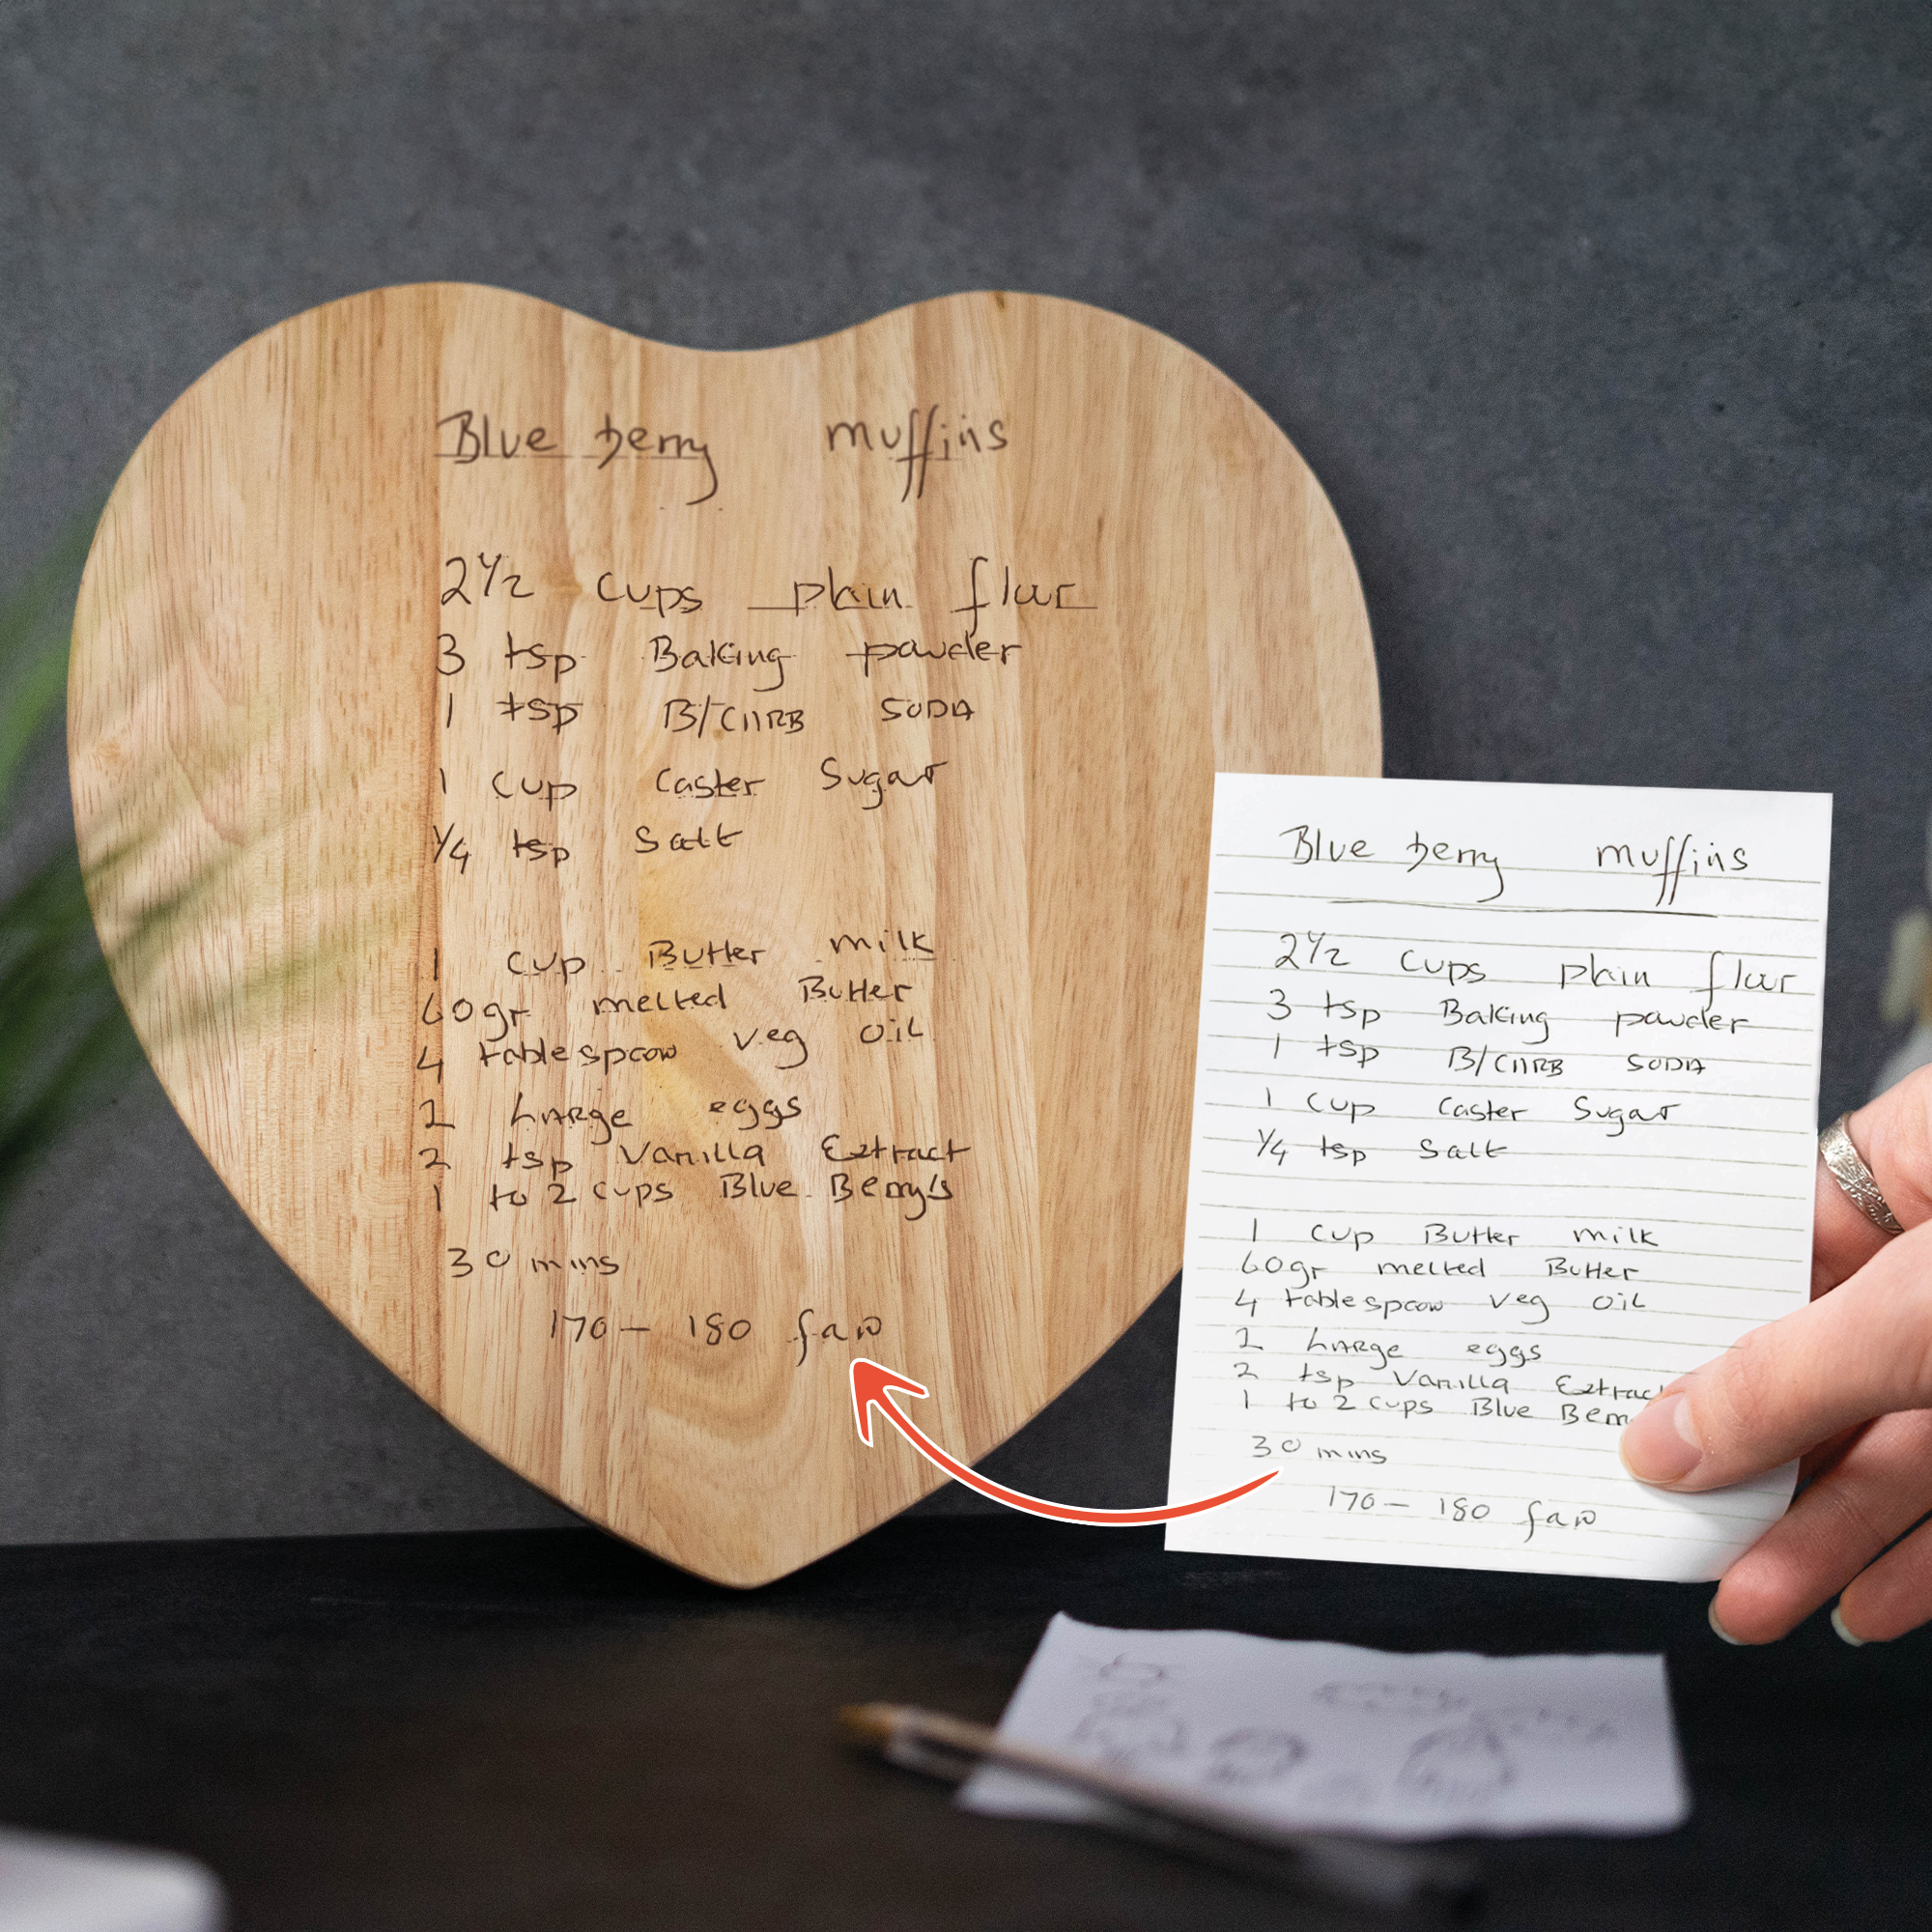 Blue berry muffins
2 1/2 cups plain flour
3 tsp Baking powder
1 tsp B/CARB SODA
1 cup Caster Sugar
1/4 tsp Salt
1 cup Butter milk
60gr melted Butter
4 tablespoon veg oil
2 LARge eggs
2 tsp Vanilla Extract
1 to 2 cups Blue Berry's
30 mins
170 - 180 fan
Blue berry muffins
2 1/2 cups plain flour
3 tsp Baking powder
1 tsp B/CARB SODA
1 cup Caster Sugar
1/4 tsp Salt
1 cup Butter milk
60gr melted Butter
4 tablespoon veg oil
2 LARge eggs
2 tsp Vanilla Extrac
1 to 2 cups Blue Berr
30 mins
170 - 180 fan